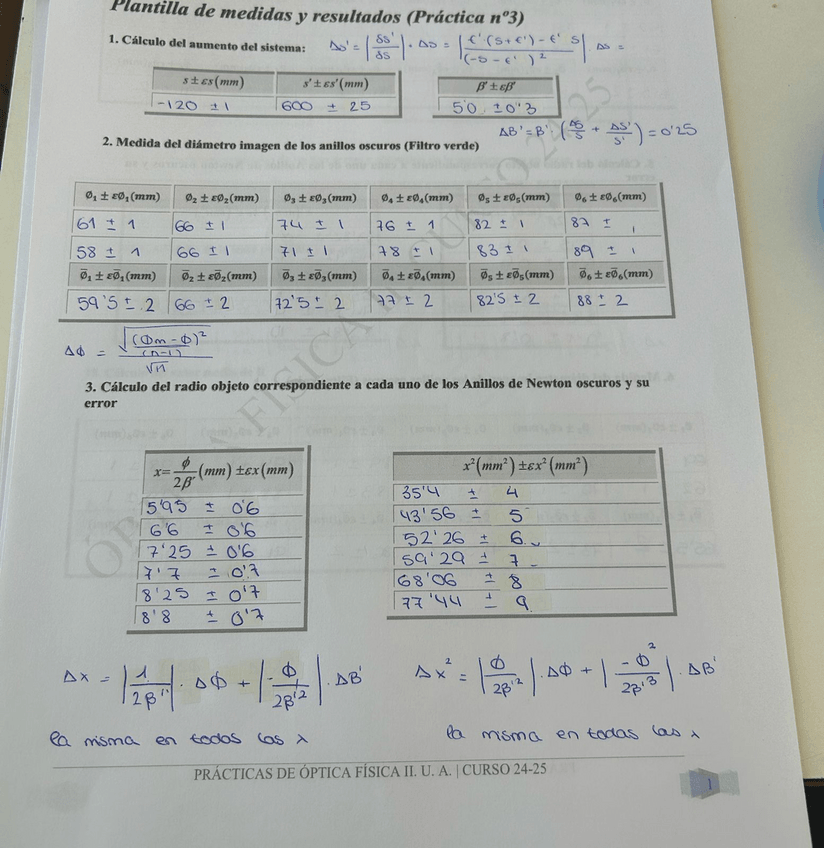 Plantilla de medidas y resultados (Práctica nº3)
1. Cálculo del aumento del sistema: Δs' = |δs'/δs| · Δs = |(f'·(s+f') - f' s)/(-s - f')²| · Δs =
s ± εs (mm) s' ± εs' (mm) β' ± εβ'
-120 ± 1 600 ± 25 5'0 ± 0'3
ΔB' = B' · (Δs/s + Δs'/s') = 0'25
2. Medida del diámetro imagen de los anillos oscuros (Filtro verde)
Ø₁ ± εØ₁(mm) Ø₂ ± εØ₂(mm) Ø₃ ± εØ₃(mm) Ø₄ ± εØ₄(mm) Ø₅ ± εØ₅(mm) Ø₆ ± εØ₆(mm)
61 ± 1 66 ± 1 74 ± 1 76 ± 1 82 ± 1 87 ± 1
58 ± 1 66 ± 1 71 ± 1 78 ± 1 83 ± 1 89 ± 1
Ø̄₁ ± εØ̄₁(mm) Ø̄₂ ± εØ̄₂(mm) Ø̄₃ ± εØ̄₃(mm) Ø̄₄ ± εØ̄₄(mm) Ø̄₅ ± εØ̄₅(mm) Ø̄₆ ± εØ̄₆(mm)
59'5 ± 2 66 ± 2 72'5 ± 2 77 ± 2 82'5 ± 2 88 ± 2
Δϕ = √((ϕm - ϕ)²/(n-1)) / √n
3. Cálculo del radio objeto correspondiente a cada uno de los Anillos de Newton oscuros y su
error
x = ϕ/2β' (mm) ± εx (mm) x² (mm²) ± εx² (mm²)
5'95 ± 0'6 35'4 ± 4
6'6 ± 0'6 43'56 ± 5
7'25 ± 0'6 52'26 ± 6
7'7 ± 0'7 59'29 ± 7
8'25 ± 0'7 68'06 ± 8
8'8 ± 0'7 77'44 ± 9
Δx = |1/2β'| · Δϕ + |-ϕ/2β'²| · ΔB' Δx² = |ϕ/2β'²| · Δϕ + |-ϕ²/2β'³| · ΔB'
la misma en todos las λ la misma en todas las λ
PRÁCTICAS DE ÓPTICA FÍSICA II. U. A. | CURSO 24-25
1